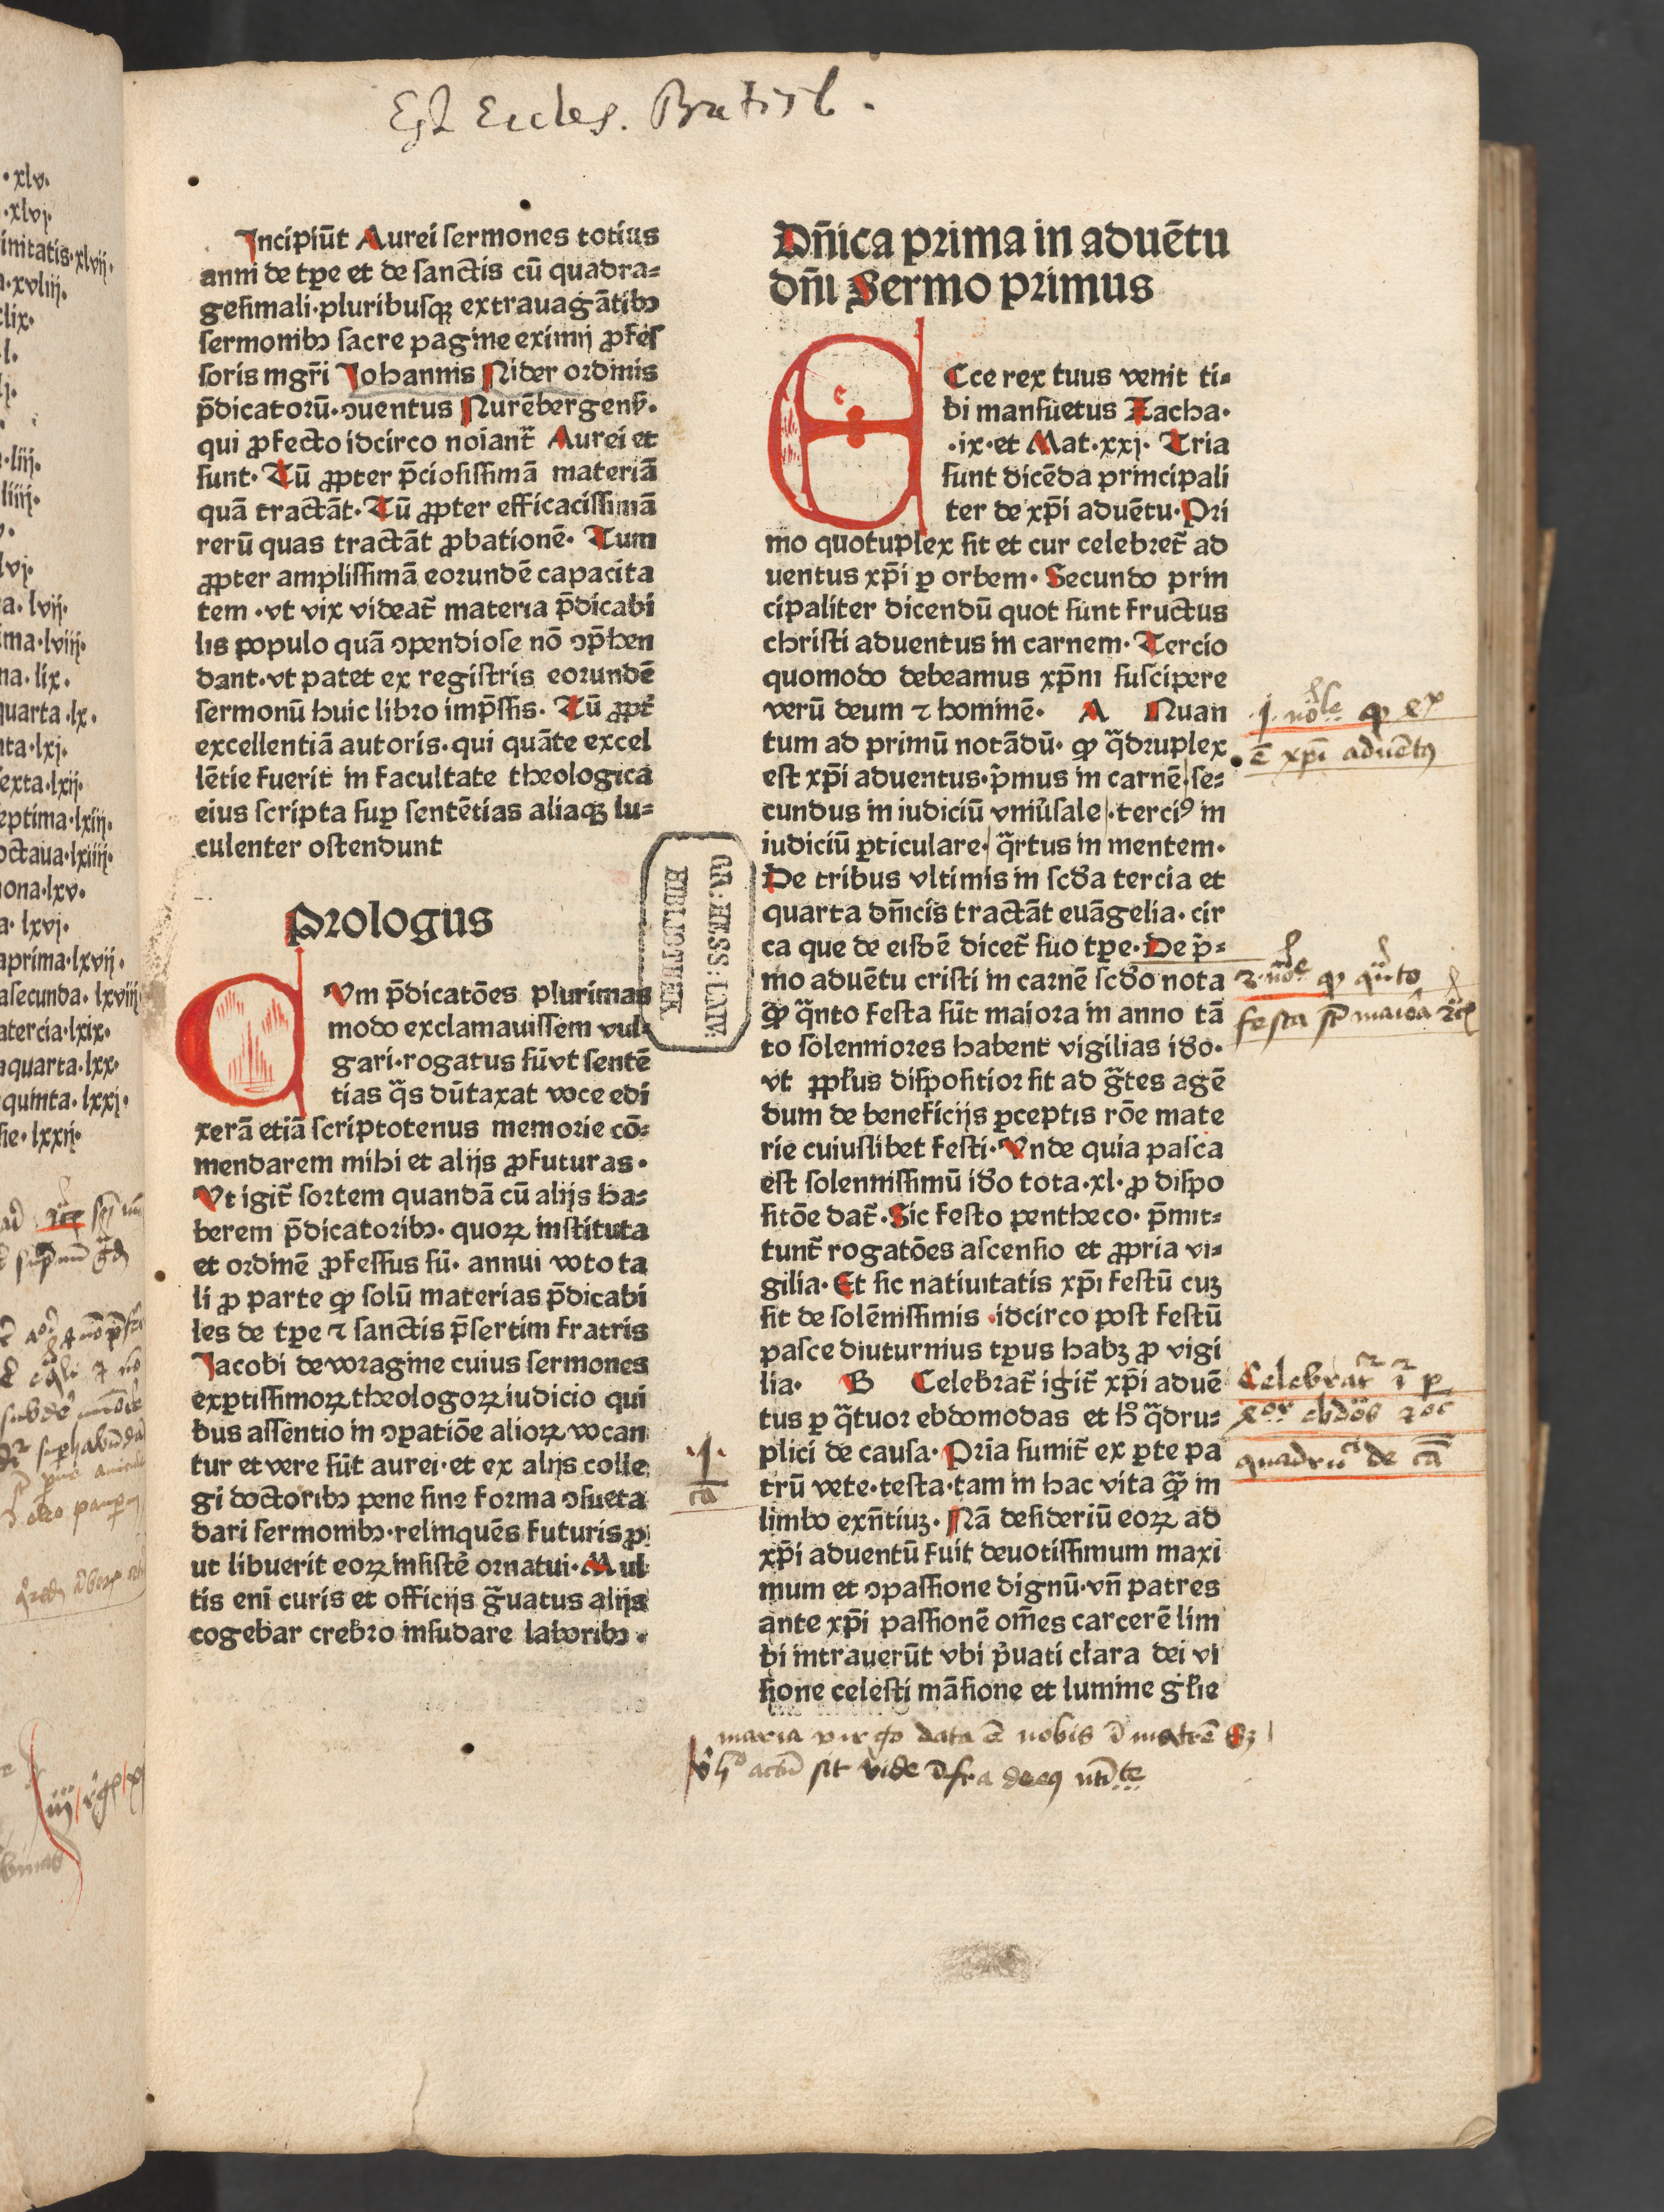 Est Eccles. Bratisl.
Incipiūt Aurei sermones totius
anni de tp̄e et de sanctis cū quadra⸗
gesimali·pluribusqꝫ extrauagātibꝰ
sermonibꝰ sacre pagine eximij ꝓfes
soris mgr̄i Johannis Nider ordinis
p̄dicatorū·ↄuentus Nurēbergens̄·
qui ꝓfecto idcirco noiant̄ Aurei et
sunt· Tū ꝓpter p̄ciosissimā materiā
quā tractāt· Tū ꝓpter efficacissimā
rerū quas tractāt ꝓbationē· Tum
ꝓpter amplissimā eorundē capacita
tem ·vt vix videat̄ materia p̄dicabi
lis populo quā ↄpendiose nō ↄp̄hen
dant·vt patet ex registris eorundē
sermonū huic libro imp̄ssis· Tū ꝓpt̄
excellentiā autoris·qui quāte excel
lētie fuerit in facultate theologica
eius scripta suꝑ sentētias aliaqꝫ lu⸗
culenter ostendunt
Prologus
CVm p̄dicatōes plurimas
modo exclamauissem vul⸗
gari·rogatus sū vt sentē
tias q̄s dūtaxat voce edi
xerā etiā scriptotenus memorie cō⸗
mendarem mihi et alijs ꝓfuturas·
Vt igit̄ sortem quandā cū alijs ha⸗
berem p̄dicatoribꝰ· quoꝝ instituta
et ordinē ꝓfessus sū· annui voto ta
li ꝓ parte ꝙ solū materias p̄dicabi
les de tp̄e ⁊ sanctis p̄sertim fratris
Jacobi de voragine cuius sermones
exꝑtissimoꝝ theologoꝝ iudicio qui
bus assentio in ↄꝑatiōe alioꝝ vocan
tur et vere sūt aurei·et ex alijs colle
gi doctoribꝰ pene sine forma ↄsueta
dari sermonibꝰ·relinquēs futuris ꝓ
ut libuerit eoꝝ insistē ornatui· Mul
tis eni curis et officijs g̃uatus alijs
cogebar crebro insudare laboribꝰ·
Dn̄ica prima in aduētu
dn̄i Sermo primus
ECce rex tuus venit ti⸗
bi mansuetus Zacha·
·ix·et Mat·xxj· Tria
sunt dicēda principali
ter de xp̄i aduētu·Pri
mo quotuplex sit et cur celebret̄ ad
uentus xp̄i ꝑ orbem· Secundo prin
cipaliter dicendū quot sunt fructus
christi aduentus in carnem· Tercio
quomodo debeamus xp̄m suscipere
verū deum ⁊ hominē· A Nuan
tum ad primū notādū· ꝙ q̃druplex
est xp̄i aduentus·p̄mus in carnē·se⸗
cundus in iudiciū vniu̇sale·terciꝰ in
iudiciū ꝑticulare·q̃rtus in mentem·
De tribus vltimis in scd̄a tercia et
quarta dn̄icis tractāt euāgelia·cir
ca que de eisdē dicet̄ suo tp̄e·De p̄⸗
mo aduētu cristi in carnē scd̄o nota
ꝙ q̃nto festa sūt maiora in anno tā
to solenniores habent vigilias id̄o·
vt ꝓpl̄us dispositior sit ad g̃tes agē
dum de beneficijs ꝑceptis rōe mate
rie cuiuslibet festi·Vnde quia pasca
est solennissimū id̄o tota·xl·ꝓ dispo
sitōe dat̄·Sic festo pentheco· p̄mit⸗
tunt̄ rogatōes ascensio et ꝓpria vi⸗
gilia·Et sic natiuitatis xp̄i festū cuꝫ
sit de solēnissimis ·idcirco post festū
pasce diuturnius tp̄us habꝫ ꝓ vigi
lia· B Celebrat̄ igit̄ xp̄i aduē
tus ꝑ q̃tuor ebdomodas et h̊ q̃dru⸗
plici de causa·Pria sumit̄ ex ꝑte pa
trū vete·testa·tam in hac vita q̃ꝫ in
limbo exn̄tiuꝫ· Nā desideriū eoꝝ ad
xp̄i aduentū fuit deuotissimum maxi
mum et ↄpassione dignū·vn̄ patres
ante xp̄i passionē om̄es carcerē lim
bi intrauerūt vbi p̓uati clara dei vi
sione celesti māsione et lumine gl̄ie
GR: HESS: LNIV:
BIBLIOTHEK
ē xp̄i aduētꝰ
Celebrat̄
quadru de cā
·1·
cā
maria virgo data ē nobis ī matrē
sit vide īfra
·xlv·
·xlvj·
initatis·xlvij·
a·xlviij·
·lix·
·l·
·liij·
·liiij·
·lvj·
a·lvij·
ima·lviij·
na·lix·
quarta·lx·
nta·lxj·
sexta·lxij·
eptima·lxiij·
octaua·lxiiij·
ona·lxv·
a·lxvj·
aprima·lxvij·
asecunda·lxviij
atercia·lxix·
aquarta·lxx·
quinta·lxxj·
sie·lxxij·